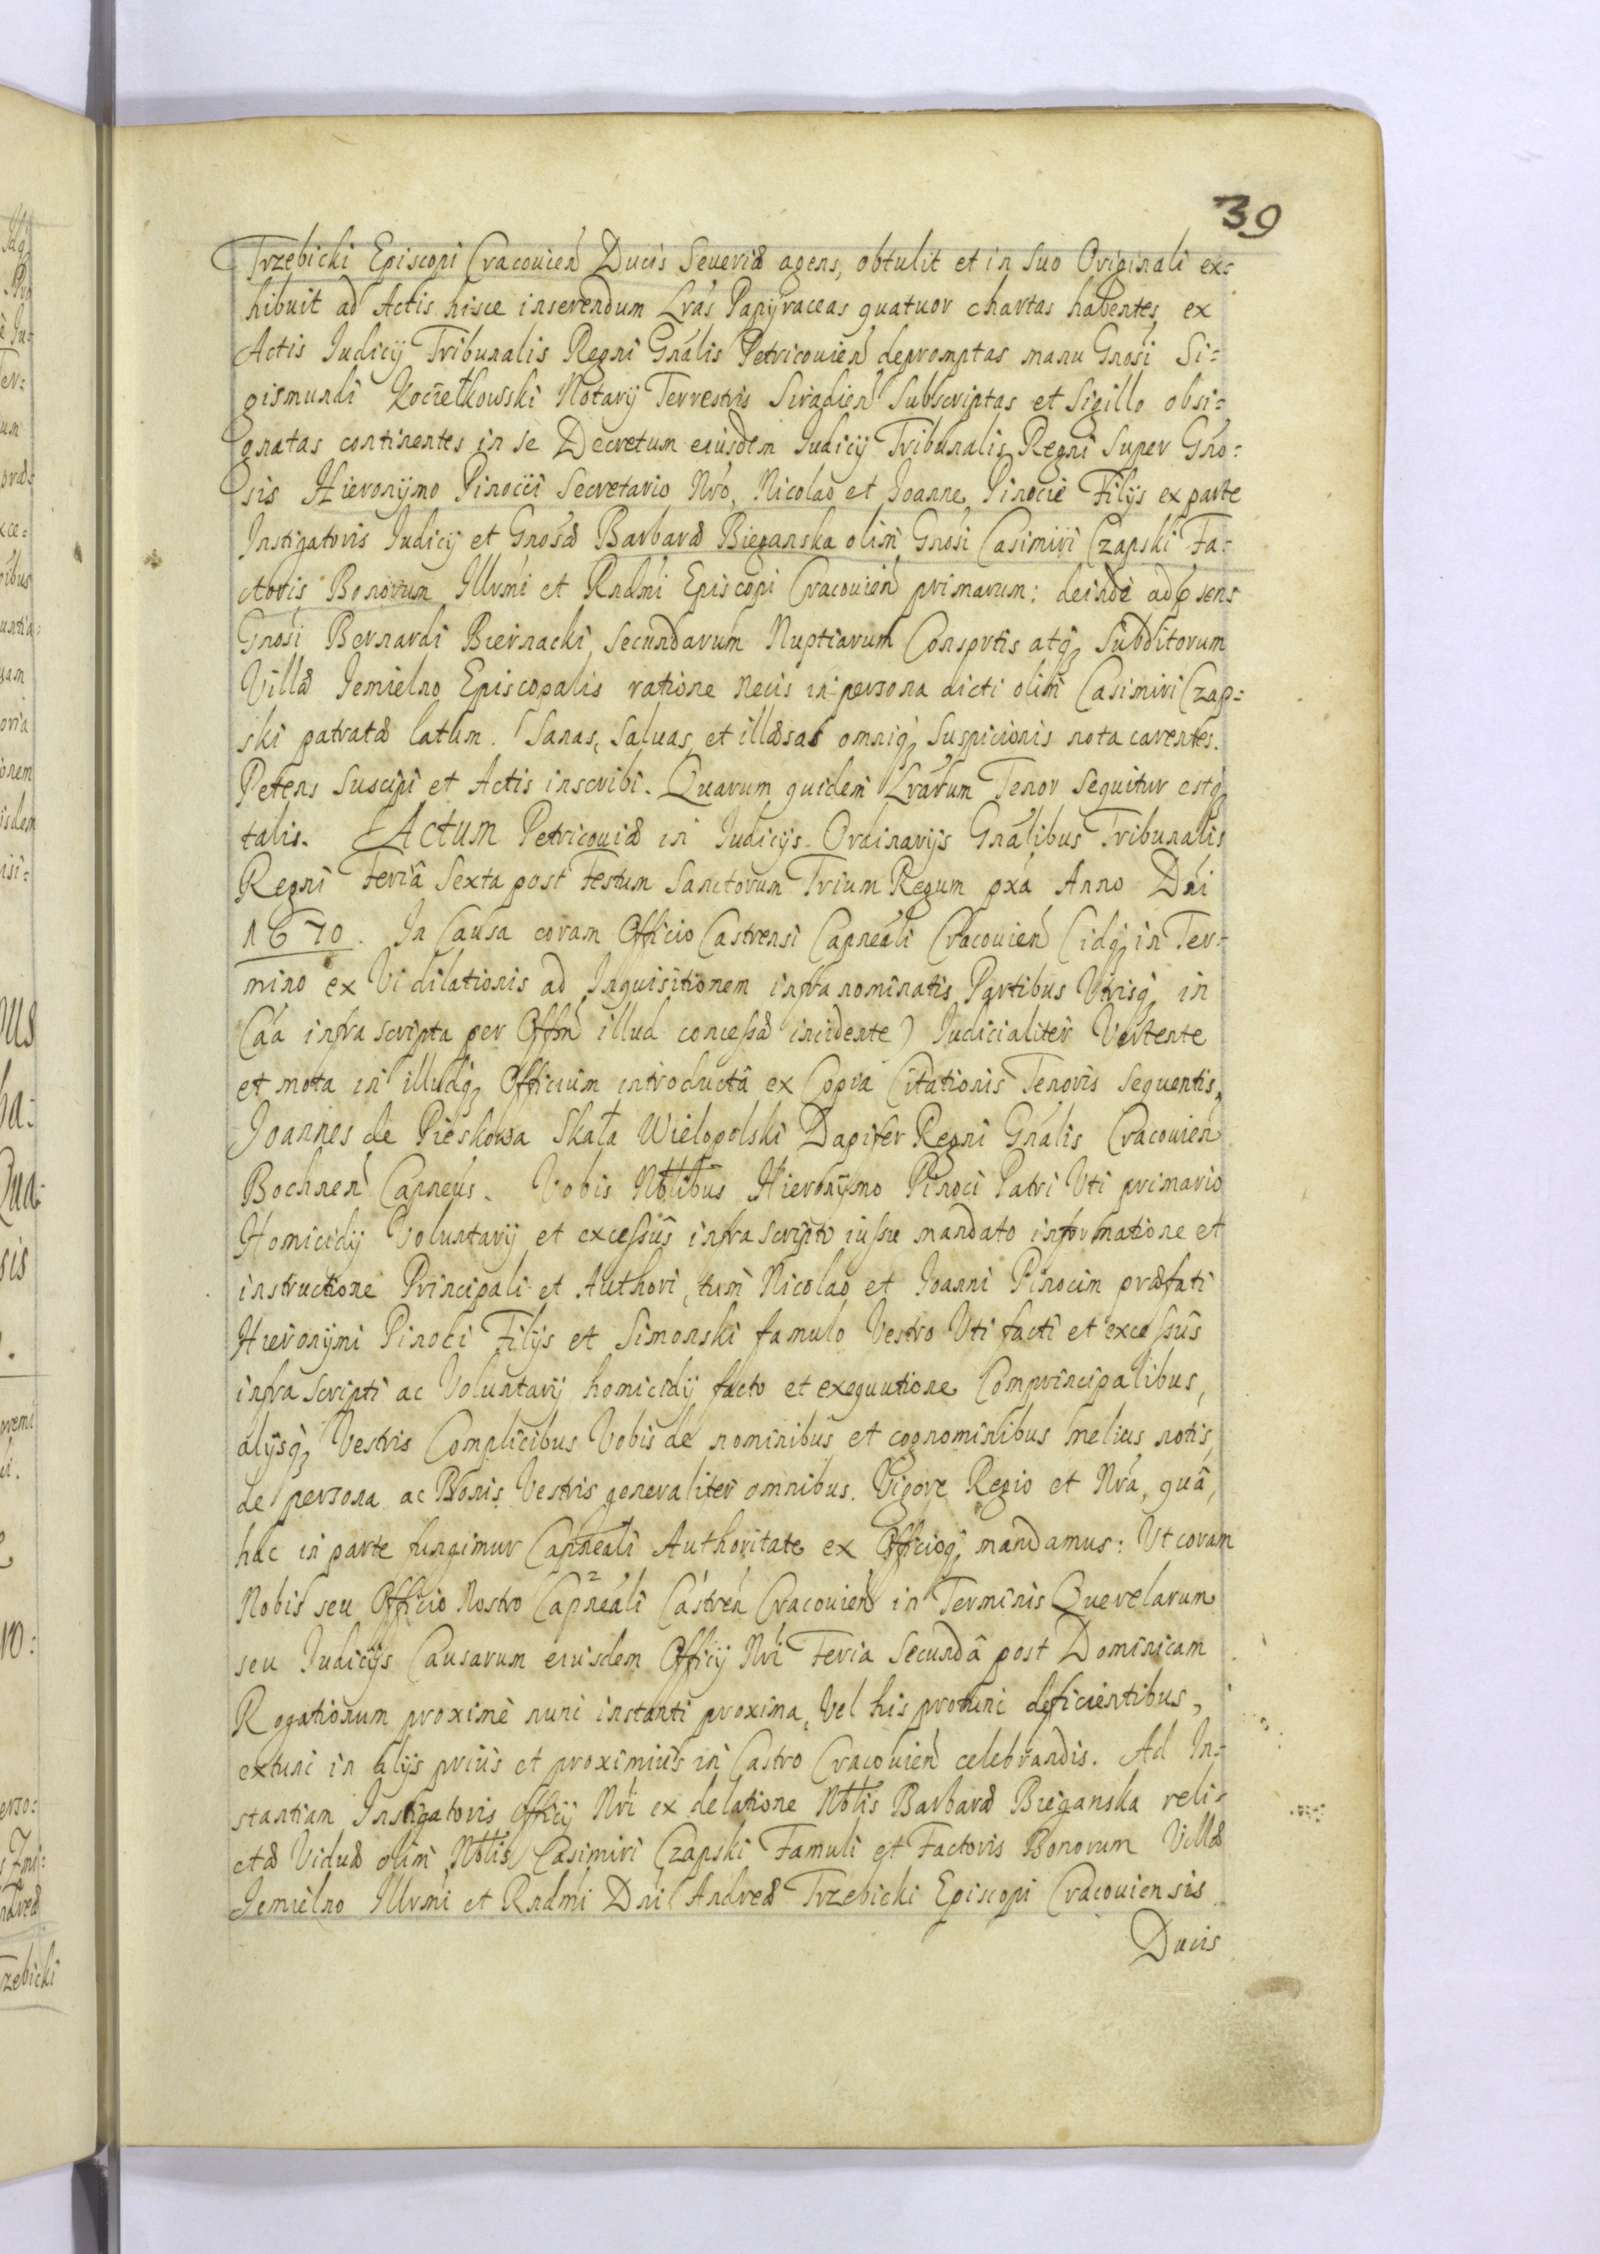 39
Trzebicki Episcopi Cracouien Ducis Seueriæ agens, obtulit et in suo Originali ex=
hibuit ad Actis hisce inserendum Lrás Papÿraceas quatuor chartas habentes, ex
Actis Iudicij Tribunalis Regni Gnális Petricouien depromptas manu Gnosi Si=
gismundi Kociełkowski Notarij Terrestris Siradien Subscriptas et Sigillo obsi=
gnatas continentes in se Decretum eiusdem Iudicij Tribunalis Regni super Gńo=
sis Hieronÿmo Pinocii Secretario Nró, Nicolao et Joanne Pinocie Filijs ex parte
Instigatoris Iudicij et Gnosæ Barbaræ Bieganska olim Gnosi Casimiri Czapski Fa=
ctoris Bonorum Illrmi et Rndmi Episcopi Cracouien primarum: deinde ad
Gnosi Bernardi Biernacki, secundarum Nuptiarum Consortis atq; Subditorum
Villæ Jemielno Episcopalis ratione necis in persona dicti olim Casimiri Czap=
ski patratæ latum. Sanas, Saluas, et illæsas omniq; Suspicionis nota carentes.
Petens Suscipi et Actis inscribi. Quarum quidem Lrarum Tenor sequitur estq;
talis. Actum Petricouiæ in Iudicijs Ordinarijs Gnálibus Tribunalis
Regni feriâ Sexta post Festum Sanctorum Trium Regum pxá Anno Dńi
1670. In Causa coram Officio Castrensi Capneáli Cracouien (idq; in Ter=
mino ex Vi dilationis ad Inquisitionem infra nominatis Partibus Vtrisq; in
Cáá infra scripta per Offm illud concessæ incidente) Iudicialiter Vertente
et mota in illudq; Officium introductâ ex Copia Citationis Tenoris sequentis.
Joannes de Pieskowa Skała Wielopolski Dapifer Regni Gńalis Cracouien
Bochnen Capneus. Vobis Nbtlibus Hieronÿmo Pinoci Patri Vti primario
Homicidij Voluntarij et excessûs infra scripti iussu mandato informatione et
instructione Principali et Authori, tum Nicolao et Joanni Pinocim præfati
Hieronÿmi Pinoci Filijs et Simonski famulo Vestro Vti facti et excessûs
infra scripti ac Voluntarij homicidij facto et exequutione Comprincipalibus,
alijsq; Vestris Complicibus Vobis de nominibus et cognominibus melius notis,
de persona ac Bonis Vestris generaliter omnibus. Vigore Regio et Nrá, quâ,
hac in parte fungimur Capneali Authoritate ex Officioq; mandamus: Ut coram
Nobis seu Officio Nostro Capneáli Castren Cracouien in Terminis Querelarum
seu Iudicijs Causarum eiusdem Officij Nri Feria Secundâ post Dominicam
Rogationum proximè nunc instanti proxima, Vel his protunc deficientibus,
extunc in alijs prius et proximius in Castro Cracouien celebrandis. Ad In=
stantiam Instigatoris Officij Nri ex delatione Nbtlis Barbaræ Bieganska reli=
ctæ Viduæ olim Nbtlis Casimiri Czapski Famuli et Factoris Bonorum Villæ
Jemielno Illrmi et Rndmi Dńi Andreæ Trzebicki Episcopi Cracouiensis
Ducis